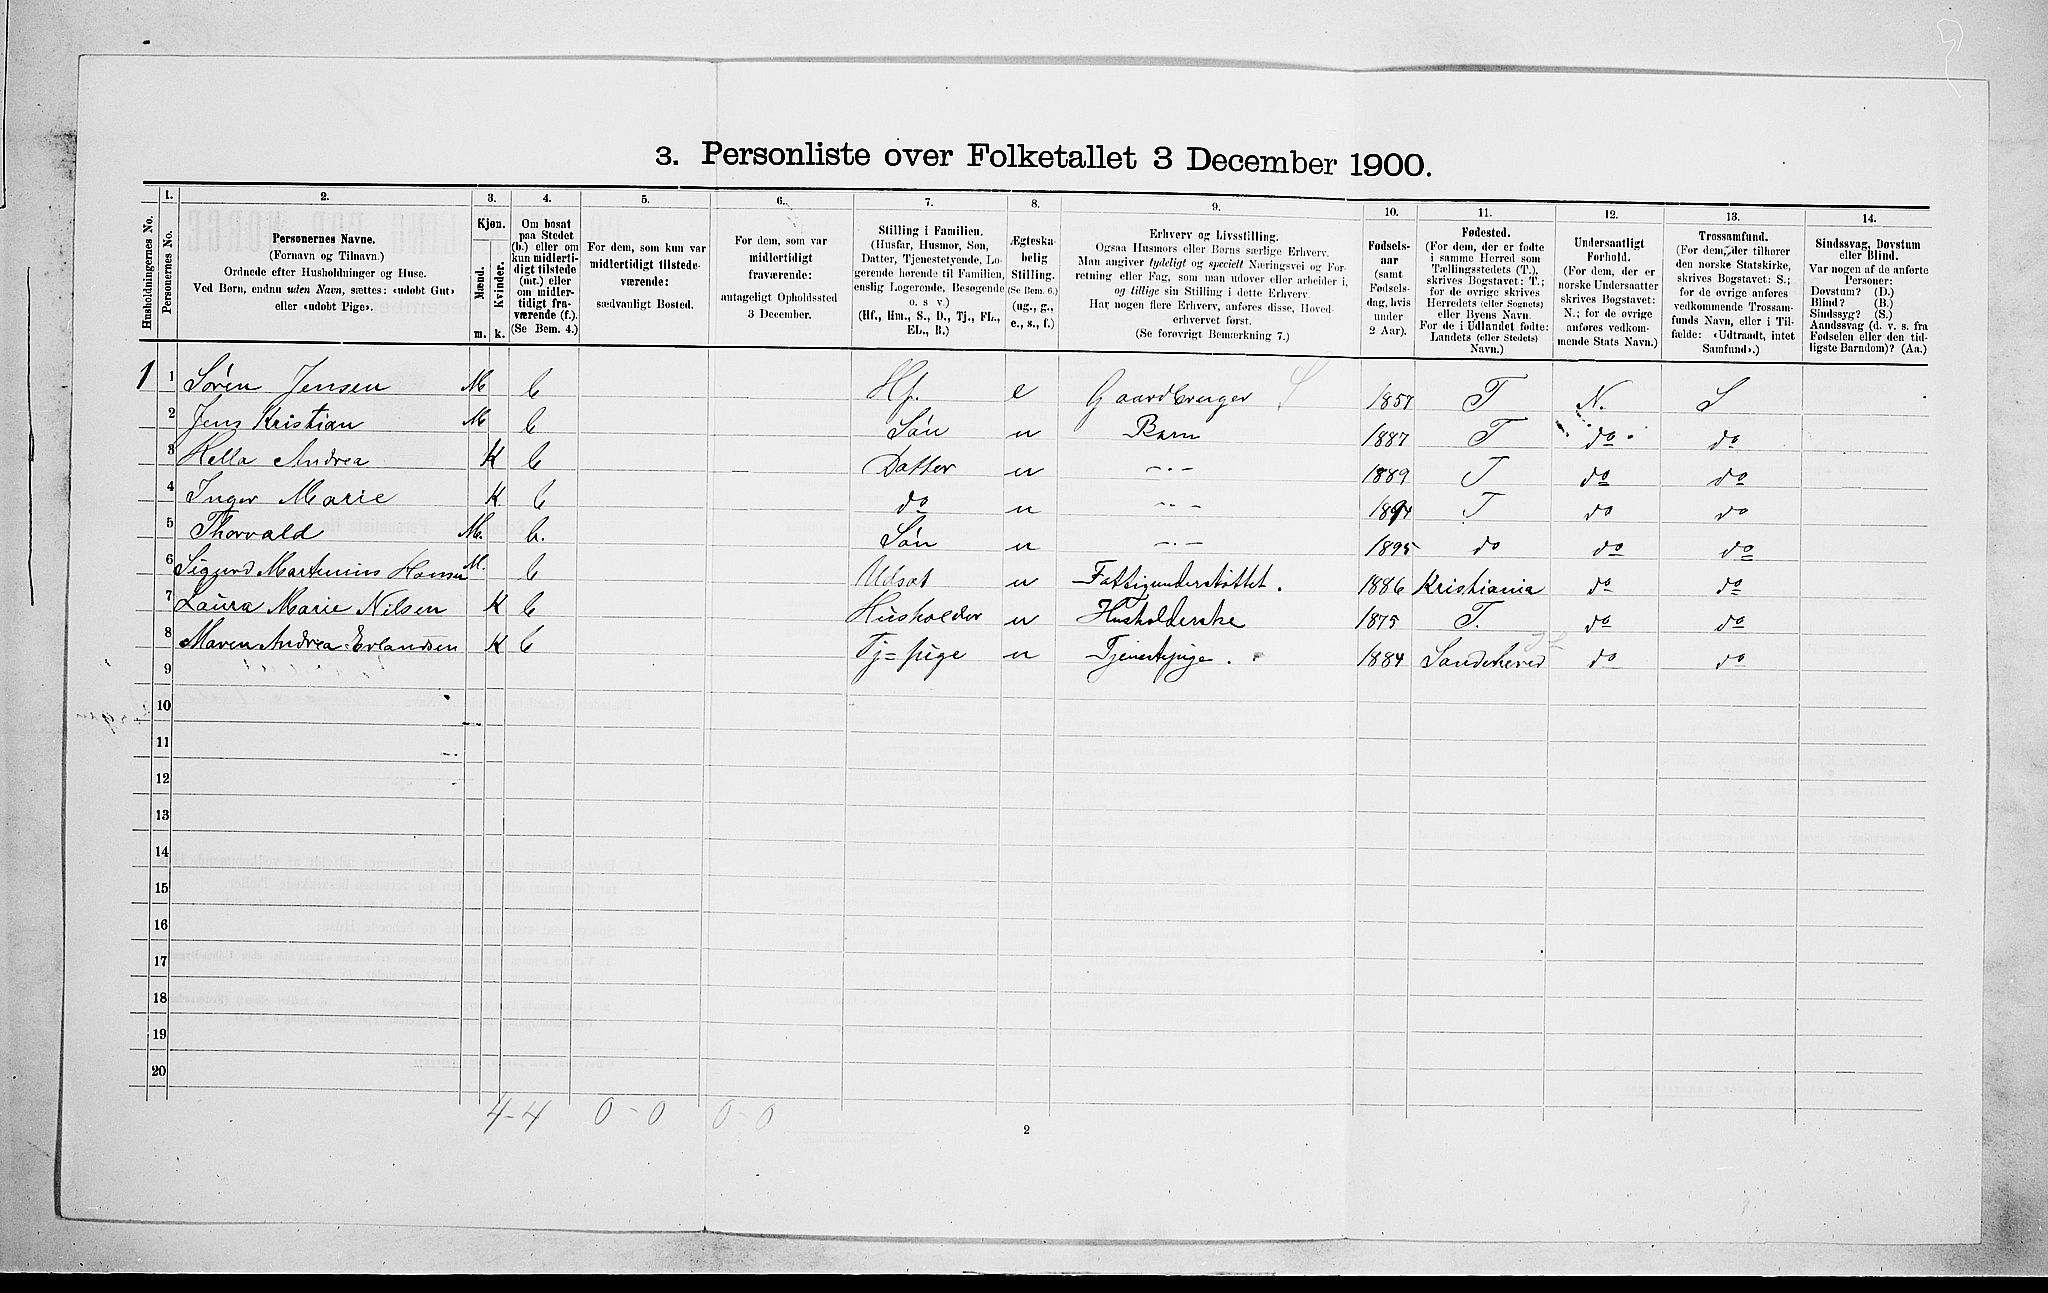 3. Personliste over Folketallet 3 December 1900.
Husholdningernes No.
1. Personernes No.
2. Personernes Navne.
(Fornavn og Tilnavn.)
Ordnede efter Husholdninger og Huse.
Ved Børn, endnu uden Navn, sættes: «udøbt Gut»
eller «udøbt Pige».
3. Kjøn.
Mænd. Kvinder.
m. k.
4. Om bosat
paa Stedet
(b.) eller om
kun midlerti-
digt tilstede
(mt.) eller
om midler-
tidigt fra-
værende (f.).
(Se Bem. 4.)
5. For dem, som kun var
midlertidigt tilstede-
værende:
sædvanligt Bosted.
6. For dem, som var
midlertidigt
fraværende:
antageligt Opholdssted
3 December.
7. Stilling i Familien.
(Husfar, Husmor, Søn,
Datter, Tjenestetyende, Lo-
gerende hørende til Familien,
enslig Logerende, Besøgende
o. s. v.)
(Hf., Hm., S., D., Tj., FL.,
EL., B.)
8. Ægteska-
belig
Stilling.
(Se Bem. 6.)
(ug., g.,
e., s., f.)
9. Erhverv og Livsstilling.
Ogsaa Husmors eller Børns særlige Erhverv.
Man angiver tydeligt og specielt Næringsvei og For-
retning eller Fag, som man udøver eller arbeider i,
og tillige sin Stilling i dette Erhverv.
Har nogen flere Erhverv, anføres disse, Hoved-
erhvervet først.
(Se forøvrigt Bemærkning 7.)
10. Fødsels-
aar
(samt
Fødsels-
dag, hvis
under
2 Aar).
11. Fødested.
(For dem, der er fødte
i samme Herred som
Tællingsstedets (T.),
skrives Bogstavet: T.;
for de øvrige skrives
Herredets (eller Sognets)
eller Byens Navn.
For de i Udlandet fødte:
Landets (eller Stedets)
Navn.)
12. Undersaatligt
Forhold.
(For dem, der er
norske Undersaatter
skrives Bogstavet:
N.; for de øvrige
anføres vedkom-
mende Stats Navn.)
13. Trossamfund.
(For dem, der tilhører
den norske Statskirke,
skrives Bogstavet: S.;
for de øvrige anføres
vedkommende Trossam-
funds Navn, eller i Til-
fælde: «Udtraadt, intet
Samfund».)
14. Sindssvag, Døvstum
eller Blind.
Var nogen af de anførte
Personer:
Døvstum? (D.)
Blind? (B.)
Sindssyg? (S.)
Aandssvag (d. v. s. fra
Fødselen eller den tid-
ligste Barndom)? (Aa.)
1 1 Søren Jensen M b Hf. e Gaardbruger S 1857 T N. S
2 Jens Kristian M b Søn u Barn 1887 T do do
3 Hella Andrea K b Datter u -"- 1889 T do do
4 Inger Marie K b do u -"- 1894 T do do
5 Thorvald M. b. Søn u -"- 1895 do do do
6 Sigurd Martinius Hansen M. b Udsat u Fattigunderstøttet. 1886 Kristiania do do
7 Laura Marie Nilsen K b Husholder u Husholderske 1875 T. do do
8 Maren Andrea Erlandsen K b Tj=pige u Tjenestepige. 1884 Sandeherred do do
9
10
11
12
13
14
15
16
17
18
19
20
4-4 0-0 0-0
2